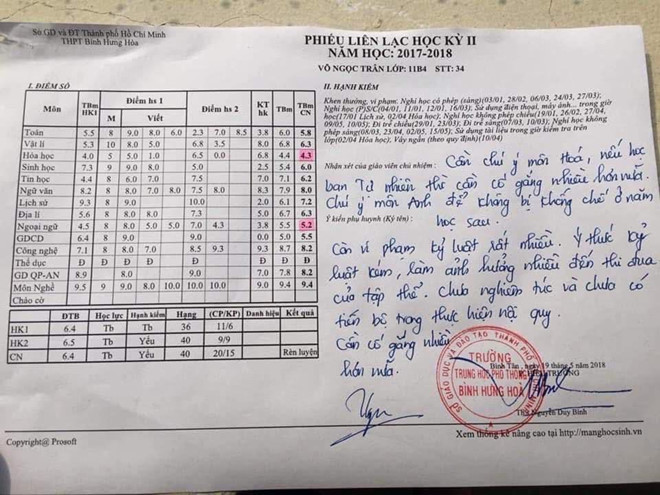 Sở GD và ĐT Thành phố Hồ Chí Minh
THPT Bình Hưng Hòa
PHIẾU LIÊN LẠC HỌC KỲ II
NĂM HỌC: 2017-2018
VÕ NGỌC TRÂN LỚP: 11B4 STT: 34
I. ĐIỂM SỐ
Môn TBm HK1 Điểm hs 1 Điểm hs 2 KT hk TBm HK TBm CN
M Viết
Toán 5.5 8 9.0 8.0 6.0 2.3 7.0 8.5 3.8 6.0 5.8
Vật lí 5.3 10 8.0 5.0 6.8 3.5 8.0 6.8 6.3
Hóa học 4.0 5 5.0 1.0 6.5 0.0 6.8 4.4 4.3
Sinh học 7.3 9 9.0 8.0 5.0 2.5 5.4 6.0
Tin học 4.4 8 6.0 7.5 7.0 7.1 6.2
Ngữ văn 8.2 8 8.0 7.0 8.0 7.5 8.0 8.3 7.9 8.0
Lịch sử 9.3 8 9.0 10.0 2.0 6.1 7.2
Địa lí 5.6 8 8.0 8.0 7.3 5.0 6.7 6.3
Ngoại ngữ 4.5 8 8.0 5.0 5.0 7.0 4.3 3.8 5.5 5.2
GDCD 6.4 8 9.0 9.0 0.0 5.0 5.5
Công nghệ 7.1 8 8.0 7.0 8.5 9.3 9.3 8.7 8.2
Thể dục Đ Đ Đ Đ Đ Đ Đ
GD QP-AN 8.9 8.0 9.0 7.0 7.8 8.2
Môn Nghề 9.5 9 9.0 8.0 10.0 10.0 10.0 9.0 9.4 9.4
Chào cờ
ĐTB Học lực Hạnh kiểm Hạng (CP/KP) Danh hiệu Kết quả
HK1 6.4 Tb Tb 36 11/6
HK2 6.5 Tb Yếu 40 9/9
CN 6.4 Tb Yếu 40 20/15 Rèn luyện
II. HẠNH KIỂM
Khen thưởng, vi phạm: Nghỉ học có phép (sáng)(03/01, 28/02, 06/03, 24/03, 27/03);
Nghỉ học (P)S/C(04/01, 11/01, 12/01, 16/03); Sử dụng điện thoại, máy ảnh... trong giờ
học(17/01 Lịch sử, 02/04 Hóa học); Nghỉ học không phép chiều(19/01, 26/02, 19/04,
09/05, 10/05); Đi trễ chiều(19/01, 23/03); Đi trễ sáng(07/03, 10/03); Nghỉ học không phép
phép sáng(08/03, 23/04, 02/05, 15/05); Sử dụng tài liệu trong giờ kiểm tra trên
lớp(02/04 Hóa học); Váy ngắn (theo quy định)(10/04)
Nhận xét của giáo viên chủ nhiệm: Cần chú ý môn Hoá, nếu học
ban Tự nhiên thì cần cố gắng nhiều hơn nữa.
Chú ý môn Anh để không bị khống chế ở năm
Ý kiến phụ huynh (Ký tên): học sau.
Còn vi phạm kỷ luật rất nhiều. Ý thức kỷ
luật kém, làm ảnh hưởng nhiều đến thi đua
của tập thể. Chưa nghiêm túc và chưa có
tiến bộ trong thực hiện nội quy.
Cần cố gắng nhiều
hơn nữa.
Bình Tân, ngày 19 tháng 5 năm 2018
SỞ GIÁO DỤC VÀ ĐÀO TẠO THÀNH PHỐ
TRƯỜNG
TRUNG HỌC PHỔ THÔNG
BÌNH HƯNG HOÀ
Nguyễn Duy Bình
Copyright@ Prosoft
Xem thống kê nâng cao tại http://manghocsinh.vn